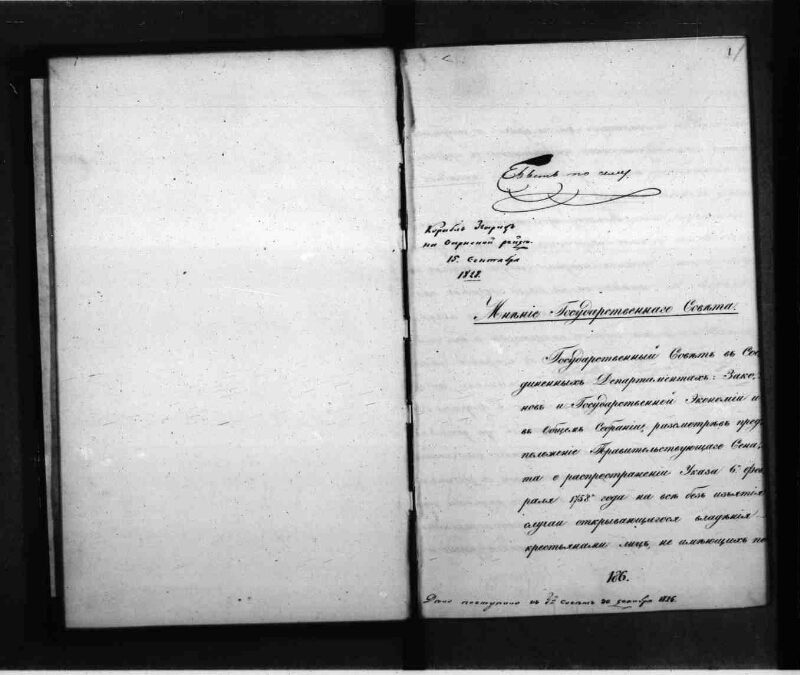 1
Быть по сему.
Корабль Парижъ
на Варнской рейдѣ.
15. Сентября
1828.
Мнѣніе Государственнаго Совѣта.
Государственный Совѣтъ въ Сое,
диненныхъ Департаментахъ: Зако,
новъ и Государственной Экономіи и
въ Общемъ Собраніи, разсмотрѣвъ пред
положеніе Правительствующаго Сена,
та о распространеніи Указа 6. Фев
раля 1758. года на всѣ безъ изъятія
случаи открывающагося владѣнія
крестьянами лицъ, не имѣющихъ по
186.
поступило въ декабря 1828.